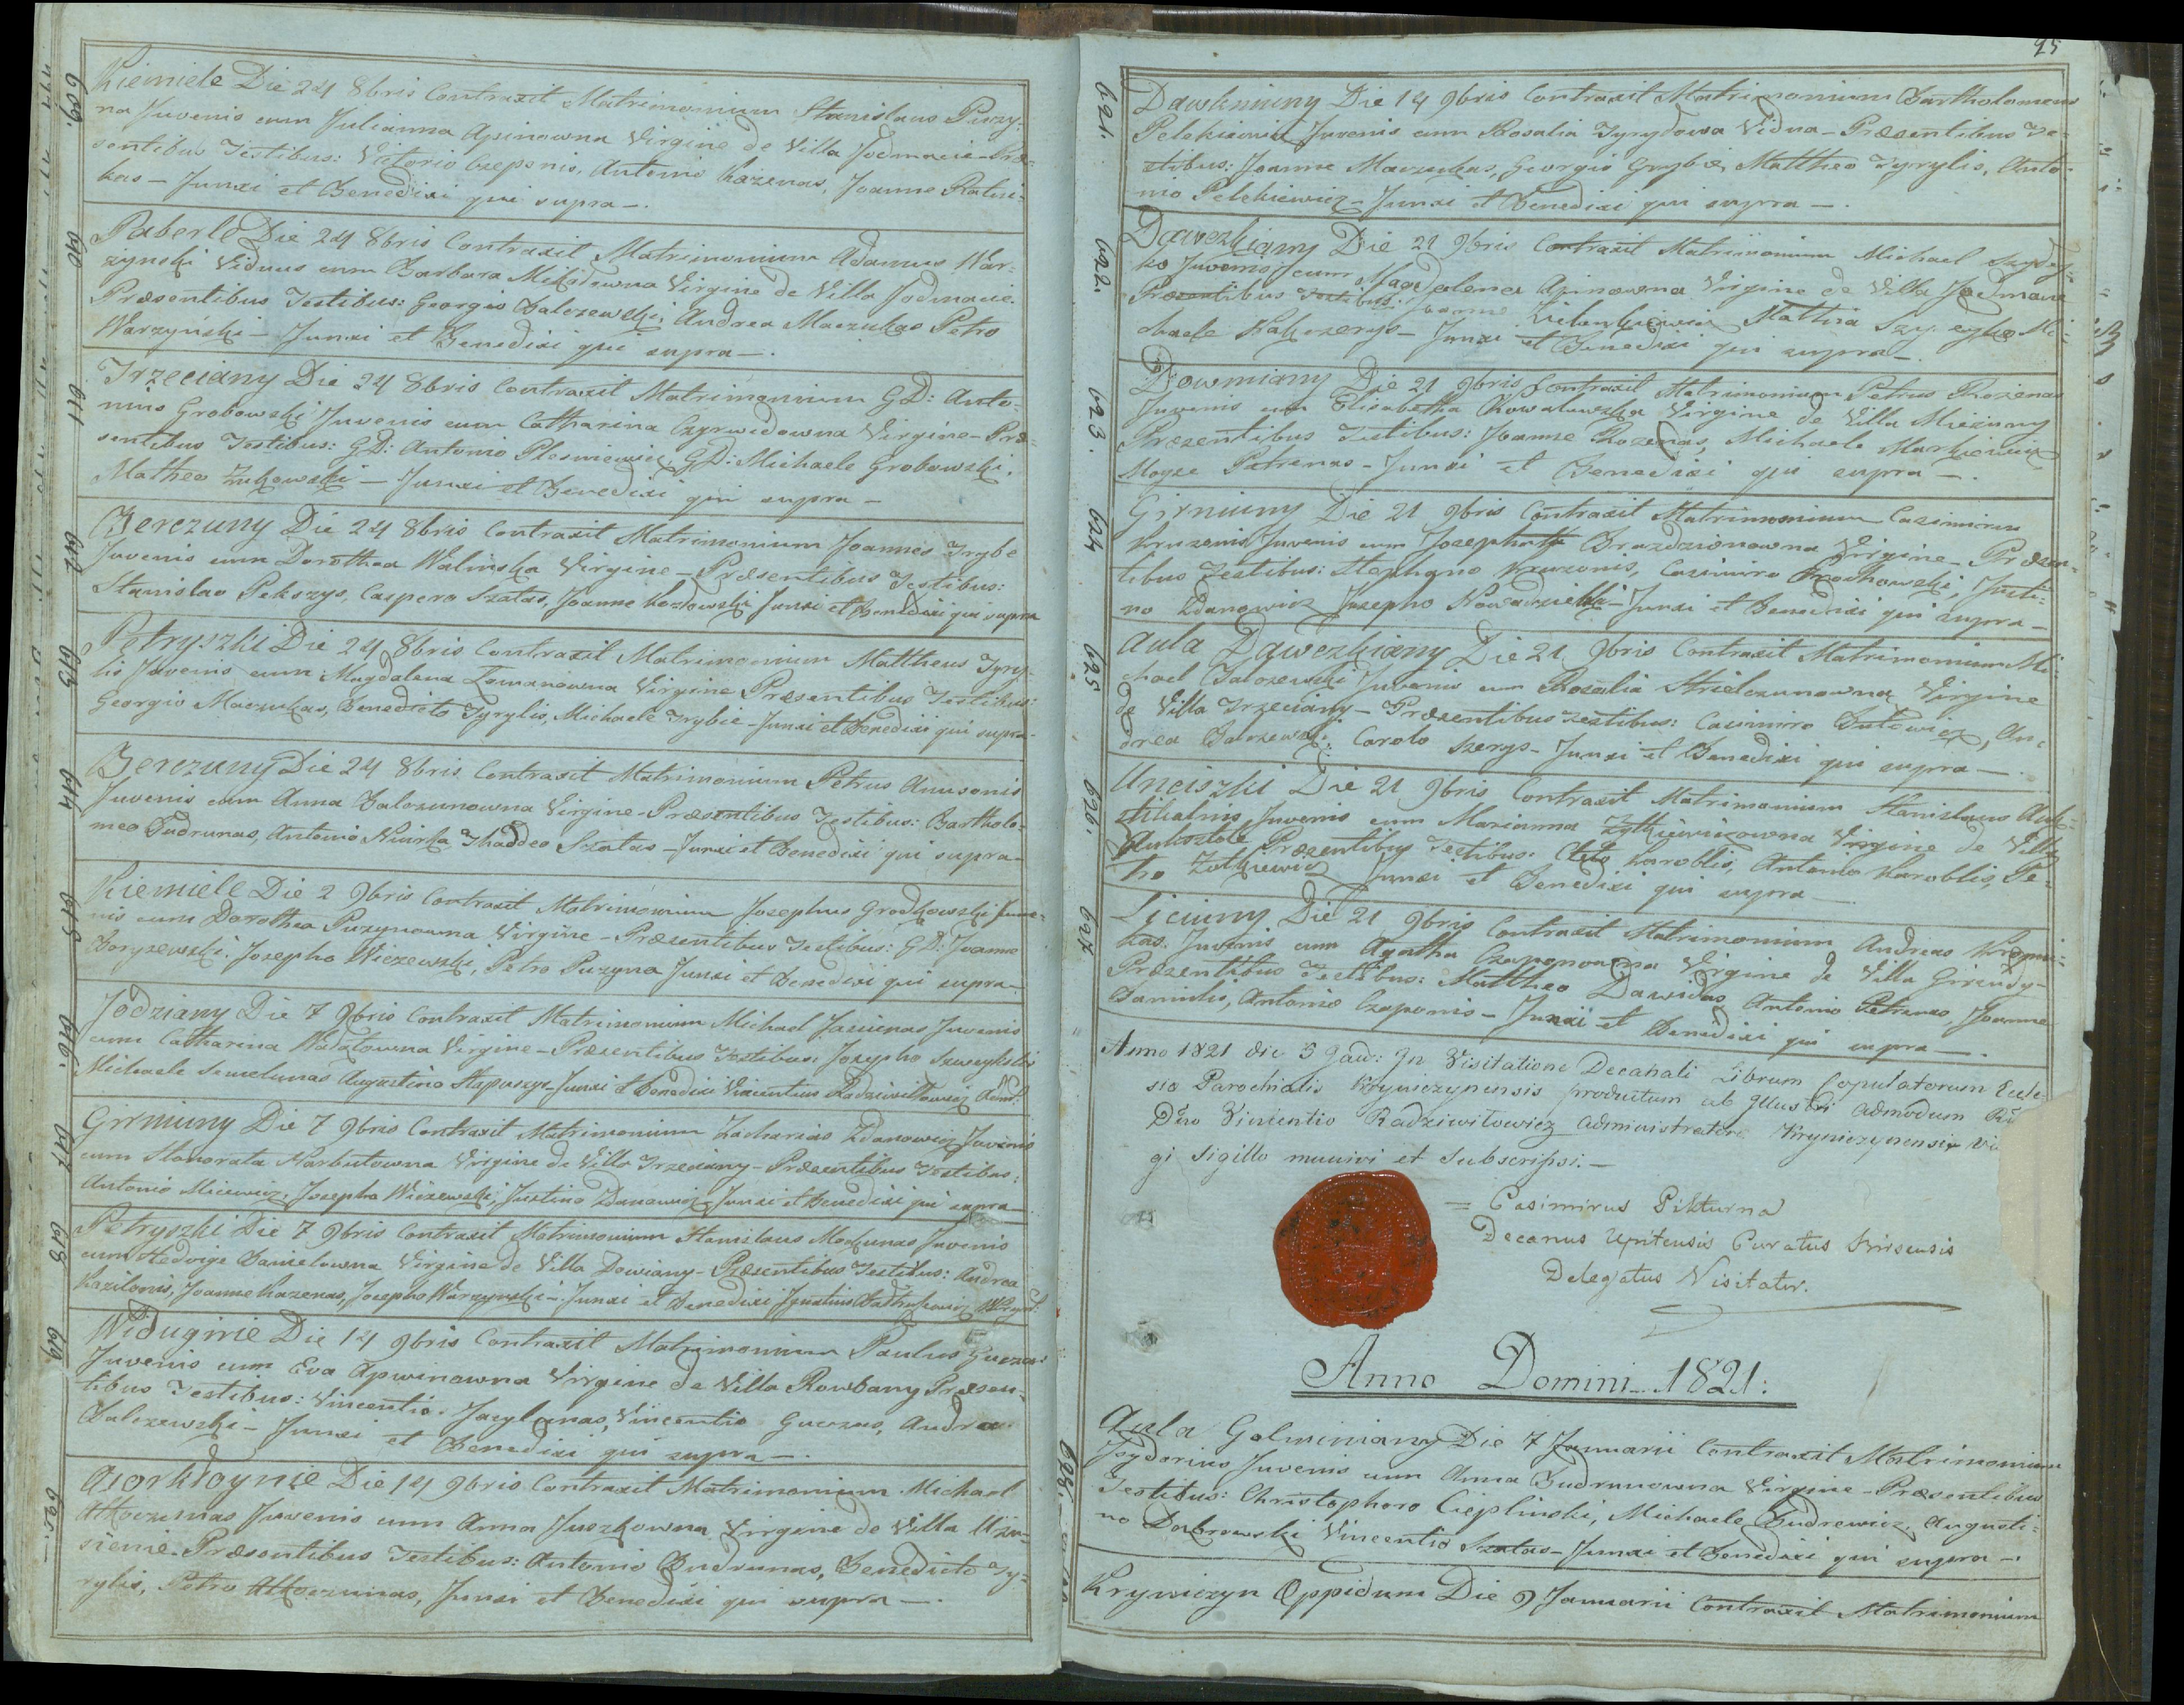 609.
Kiemiele Die 24 8bris Contraxit Matrimonium Stanislaus Puzy:
na Juvenis cum Julianna Apinowna Virgine de Villa Jodmacie Præ:
sentibus Testibus: Victorio Czeponis, Antonio Kazenas, Joanne Ratni:
kas – Junxi et Benedixi qui supra –.
610
Paberle Die 24 8bris Contraxit Matrimonium Adamus War:
zynski Viduus cum Barbara Mikodowna Virgine de Villa Jodmacie
Præsentibus Testibus: Georgio Zalczewski, Andrea Maczukas Petro
Warzyński – Junxi et Benedixi qui supra –.
611
Trzeciany Die 24 8bris Contraxit Matrimonium GD: Anto:
nius Grobowski Juvenis cum Catharina Czyrwidowna Virgine – Præ:
sentibus Testibus: GD: Antonio Plesniewicz GD: Michaele Grobowski,
Matheo Zukowski – Junxi et Benedixi qui supra –
612
Berczuny Die 24 8bris Contraxit Matrimonium Joannes Grybe
Juvenis cum Dorothea Walinska Virgine – Præsentibus Testibus:
Stanislao Pekszys, Caspero Szatas, Joanne Kozlowski Junxi et Benedixi qui supra
613
Petryszki Die 24 8bris Contraxit Matrimonium Mattheus Tyry:
lis Juvenis cum Magdalena Zemanowna Virgine Præsentibus Testibus:
Georgio Maczukas, Benedicto Tyrylis, Michaele Grybie – Junxi et Benedixi qui supra –
614
Berczuny Die 24 8bris Contraxit Matrimonium Petrus Anusonis
Juvenis cum Anna Balczunowna Virgine – Præsentibus Testibus: Bartholo:
meo Budrunas, Antonio Niurka Thaddeo Szatas – Junxi et Benedixi qui supra –
615
Kiemiele Die 2 9bris Contraxit Matrimonium Josephus Grodkowski Juve:
nis cum Dorothea Puzynowna Virgine – Præsentibus Testibus: GD: Joanne
Boryszewski, Josepho Wiczewski, Petro Puzyna Junxi et Benedixi qui supra –
616.
Jodziany Die 7 9bris Contraxit Matrimonium Michael Jasiunas Juvenis
cum Catharina Wadatowna Virgine – Præsentibus Testibus: Josepho
Michaele Augustino Stapuszys – Junxi et Benedixi Vincentius Radziwiłłowicz Admr.
617
Girniuny Die 7 9bris Contraxit Matrimonium Zacharias Zdanowicz Juvenis
cum Honorata Narbutowna Virgine de Villa Trzeciany – Præsentibus Testibus:
Antonio Micewicz, Josepho Wiczewski, Justino Zdanowicz Junxi et Benedixi qui supra –
618
Petryszki Die 7 9bris Contraxit Matrimonium Stanislaus Maczunas Juvenis
cum Hedvige Danielowna Virgine de Villa Dowiany – Præsentibus Testibus: Andrea
Kazilonis, Joanne Kazenas, Josepho Warzynski – Junxi et Benedixi Ignatius
619
Widuginie Die 14 9bris Contraxit Matrimonium Paulus Guczas:
Juvenis cum Eva Apwinowna Virgine de Villa Rowbany Præsen:
tibus Testibus: Vincentio Jacylunas, Vincentio Guczas, Andrea
Balczewski – Junxi et Benedixi qui supra –.
620.–
Aworkłoynie Die 14 9bris Contraxit Matrimonium Michael
Altoczunas Juvenis cum Anna Juszkowna Virgine de Villa Użu:
sienie. Præsentibus Testibus: Antonio Budrunas, Benedicto Ty:
rylis, Petro Altoczunas, Junxi et Benedixi qui supra –.
95
621.
Dawkniuny Die 14 9bris Contraxit Matrimonium Bartholomeus
Pelekiewicz Juvenis cum Rosalia Tyrydowa Vidua – Præsentibus Te:
stibus: Joanne Maczukas, Georgio Grybie, Mattheo Tyrylis, Anto:
nio Pelekiewicz – Junxi et Benedixi qui supra –.
622.
Dawczkiany Die 21 9bris Contraxit Matrimonium Michael
ko Juvenis cum Magdalena Apinowna Virgine de Villa Jodmacie
Præsentibus Testibus: Joanne Matthia Mi:
chaele – Junxi et Benedixi qui supra –.
623.
Dowmiany Die 21 9bris Contraxit Matrimonium Petrus Rozenas
Juvenis cum Elisabetha Kowalewska Virgine de Villa Mieżuny
Præsentibus Testibus: Joanne Rozenas, Michaele Markiewicz
Moyse Petrenas – Junxi et Benedixi qui supra –.
624
Girniuny Die 21 9bris Contraxit Matrimonium Casimirus
Kruzonis Juvenis cum Josephatta Brazdzionowna Virgine – Præsen:
tibus Testibus: Stephano Kruzonis, Casimiro Grochowski, Justi:
no Zdanowicz Josepho – Junxi et Benedixi qui supra –
625
Aula Dawczkiany Die 21 9bris Contraxit Matrimonium Mi:
chael Balczewski Juvenis cum Rosalia Strielczunowna Virgine
de Villa Trzeciany – Præsentibus Testibus: Casimiro Butowicz, An:
drea Balczewski, Carolo Szerys – Junxi et Benedixi qui supra –.
626.
Unciszki Die 21 9bris Contraxit Matrimonium Stanislaus Auk:
Juvenis cum Marianna Zytkiewiczowna Virgine de Villa
Auksztole Præsentibus Testibus: Karoblis, Antonio Karoblis, Pe:
tro Zutkiewicz Junxi et Benedixi qui supra –.
627
Liciuny Die 21 9bris Contraxit Matrimonium Andreas
kas. Juvenis cum Agatha Czaponowna Virgine de Villa Girendy –
Præsentibus Testibus: Mattheo Dawidas, Antonio Petrenas, Joanne
Daniulis, Antonio Czaponis – Junxi et Benedixi qui supra –.
Anno 1821 die 5 In Visitatione Decanali Librum Copulatorum Eccle:
siæ Parochialis Krynczynensis productum ab Illustri admodum
Dño Vincentio Radziwiłowicz Administratore Kryniczynensi
gi Sigillo munivi et Subscripsi. –
= Casimirus Pikturna
Decanus Upitensis Curatus
Delegatus Visitator.
Anno Domini 1821:
628.
Aula Golminiany Die 7 Januarii Contraxit Matrimonium
Isydorius Juvenis cum Anna Budrunowna Virgine – Præsentibus
Testibus: Christophoro Cieplinski, Michaele Budrewicz, Augusti:
no Dabrowski Vincentio Szatas – Junxi et Benedixi qui supra –.
Kryniczyn Oppidum Die 9 Januarii Contraxit Matrimonium